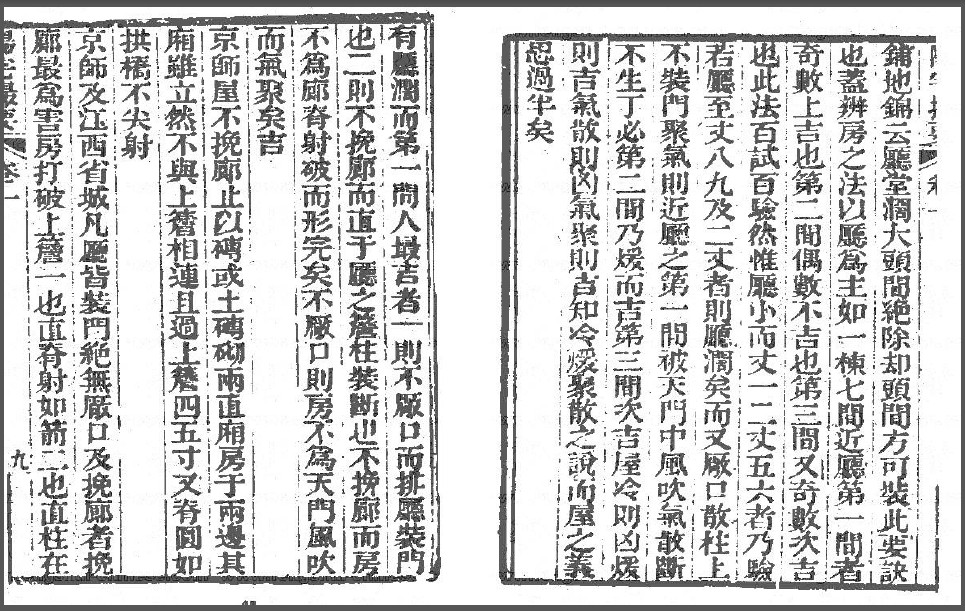 鋪地錦云廳堂濶大頭間絶除却頭間方可裝此要訣
也蓋辨房之法以廳爲主如一棟七間近廳第一間者
奇數上吉也第二間偶數不吉也第三間又奇數次吉
也此法百試百驗然惟廳小而丈一二丈五六者乃驗
若廳至丈八九及二丈者則廳濶矣而又厰口散柱上
不裝門聚氣則近廳之第一間被天門中風吹氣散斷
不生丁必第二間乃煖而吉第三間次吉屋冷則凶煖
則吉氣散則凶氣聚則吉知冷煖聚散之說而屋之義
思過半矣
有廳濶而第一間人最吉者一則不厰口而排廳裝門
也二則不挽廊而直于廳之簷柱裝斷也不挽廊而房
不爲廊脊射破而形完矣不厰口則房不爲天門風吹
而氣聚矣吉
京師屋不挽廊止以磚或土磚砌兩直廂房于兩邊其
廂雖立然不與上簷相連且過上簷四五寸又脊圓如
拱橋不尖射
京師及江西省城凡廳皆裝門絶無厰口及挽廊者挽
廊最爲害房打破上簷一也直脊射如箭二也直柱在
陽宅撮要 卷一
九